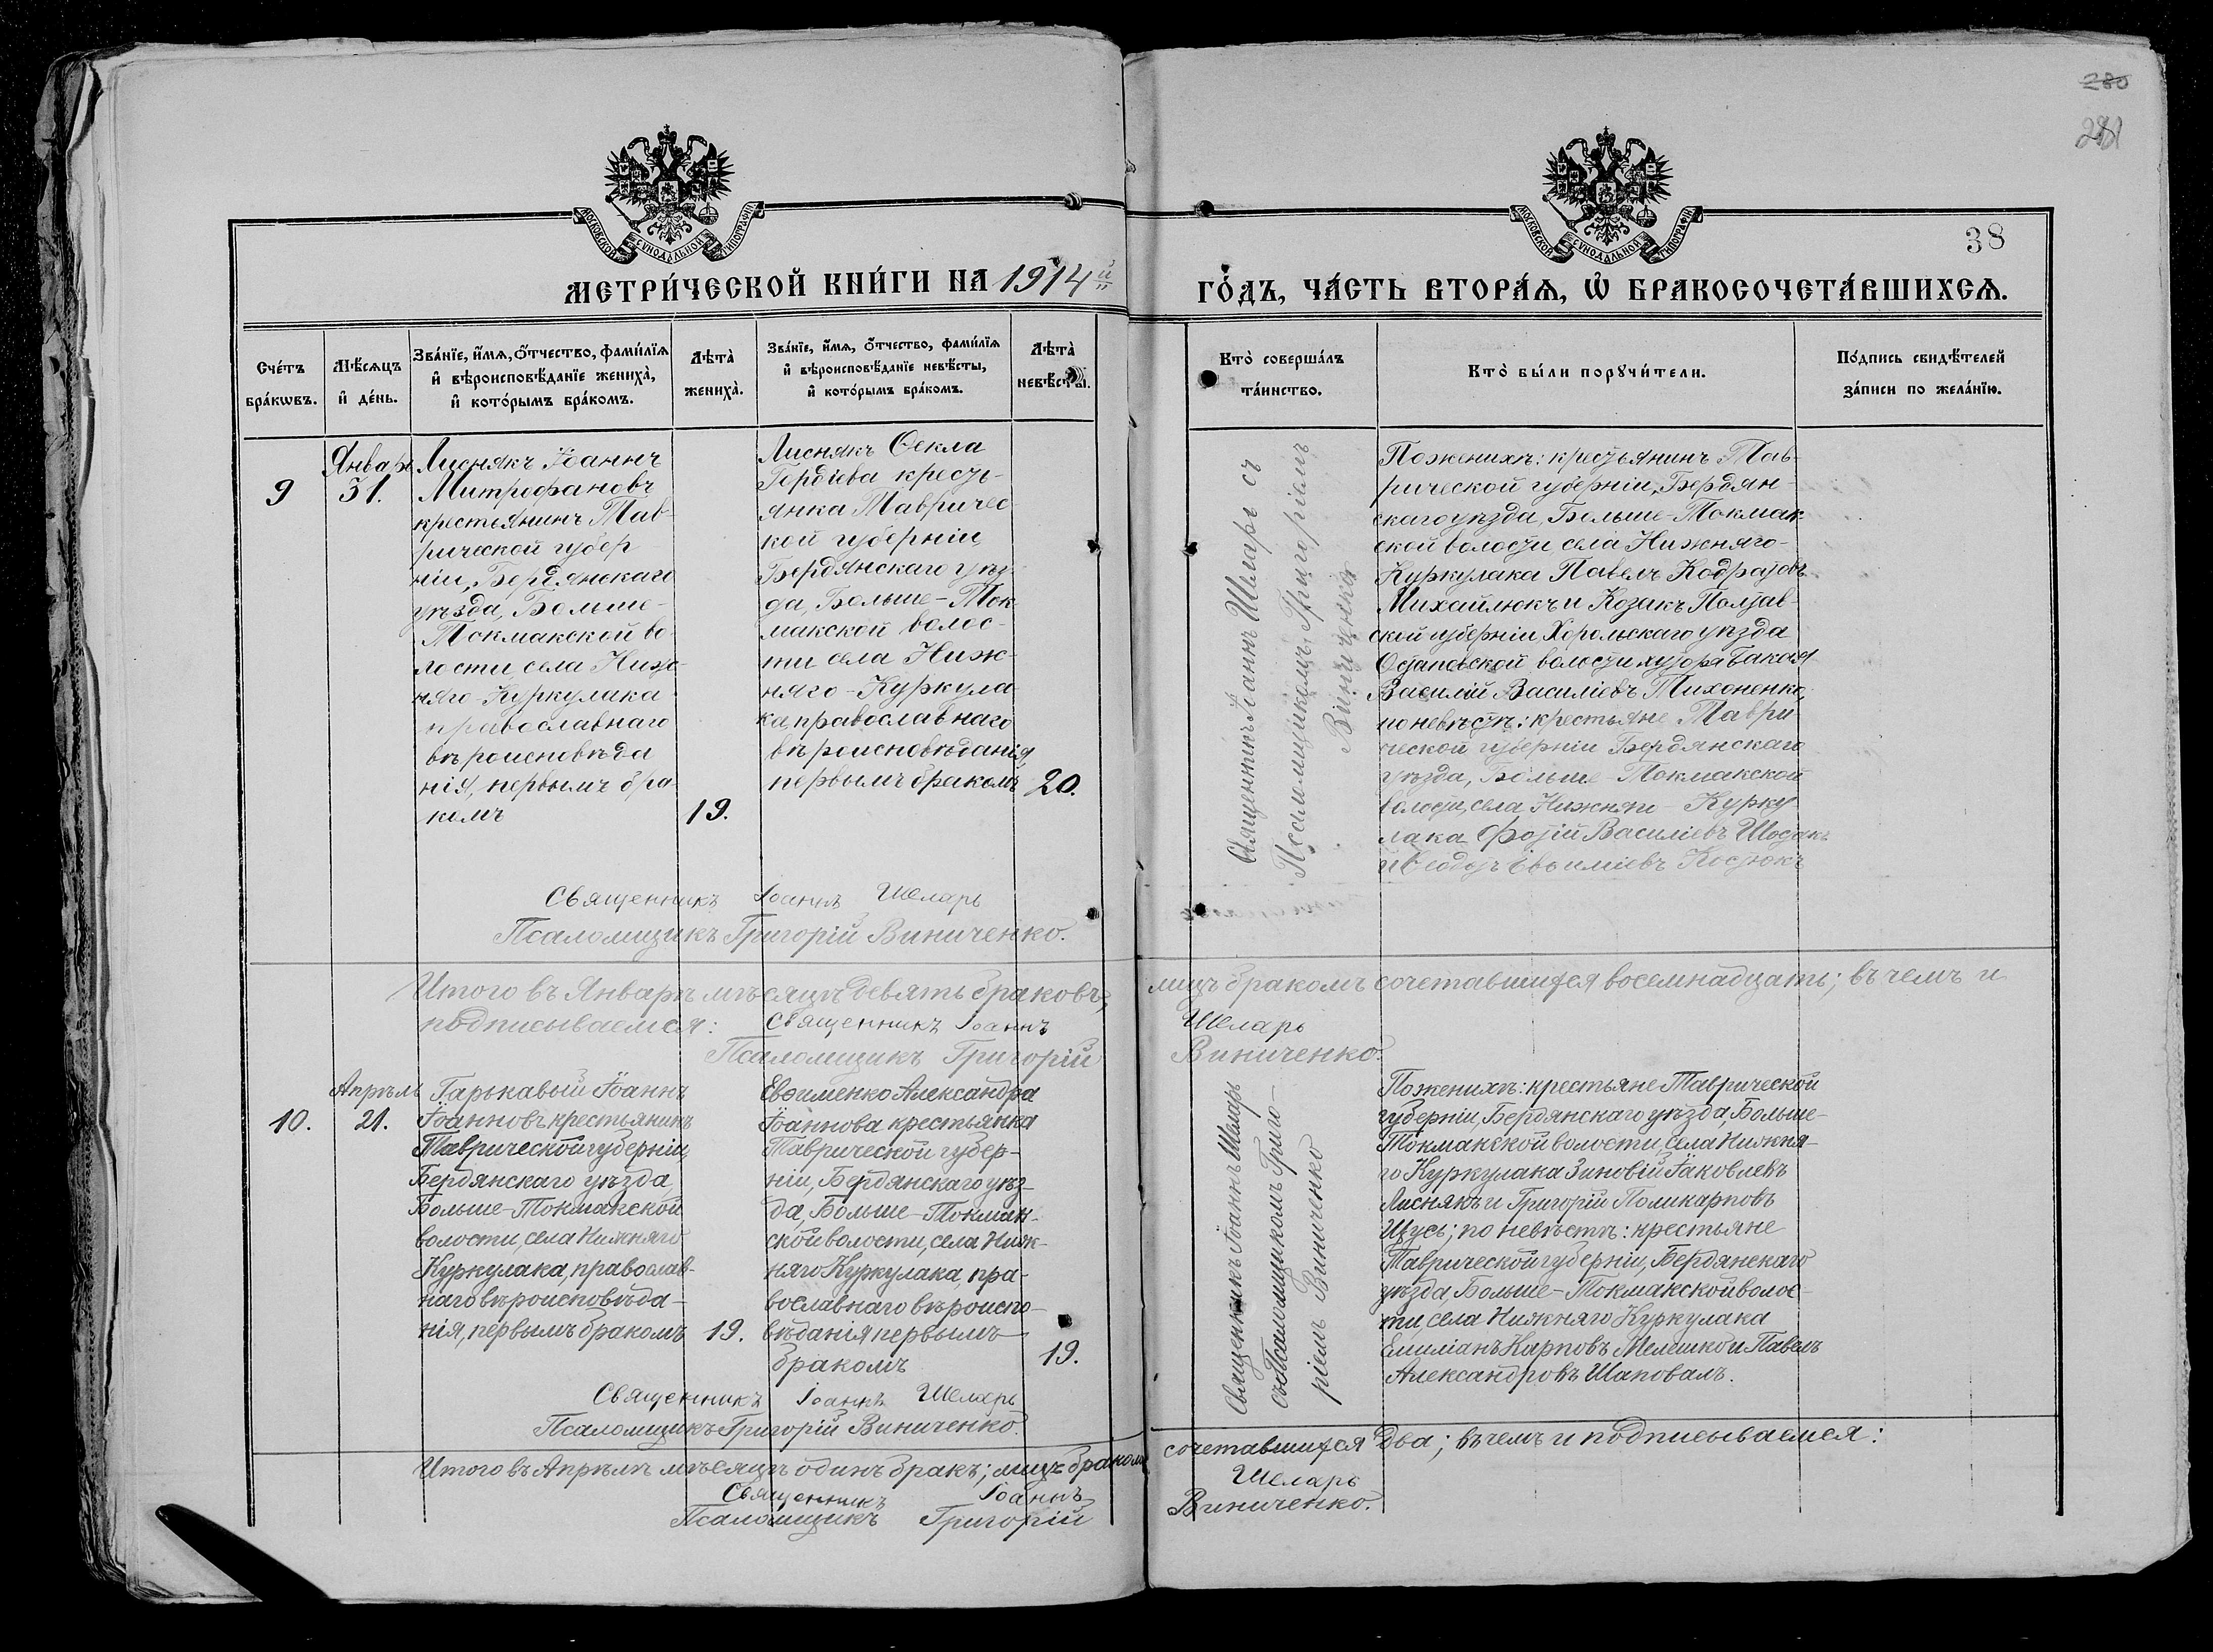 280
281
МОСКОВСКОЙ СѴНОДАЛЬНОЙ ТИПОГРАФІИ
МОСКОВСКОЙ СѴНОДАЛЬНОЙ ТИПОГРАФІИ
38
МЕТРИ́ЧЕСКОЙ КНИ́ГИ НА 1914й
ГО́ДЪ, ЧА́СТЬ ВТОРА́Ѧ, Ѡ҆ БРАКОСОЧЕТА́ВШИХСѦ.
Сче́тъ бра́кѡвъ.
Мѣ́сѧцъ и҆ де́нь.
Зва́нїе, и҆́мѧ, ѻ҆́тчество, фами́лїѧ
и҆ вѣроисповѣ́данїе жениха̀,
и҆ кото́рымъ бра́комъ.
Лѣта̀ жениха̀.
Зва́нїе, и҆́мѧ, ѻ҆́тчество, фами́лїѧ
и҆ вѣроисповѣ́данїе невѣ́сты,
и҆ кото́рымъ бра́комъ.
Лѣта̀ невѣ́сты.
Кто̀ соверша́лъ
та́инство.
Кто̀ бы́ли порꙋчи́тели.
По́дпись свидѣ́телей
за́писи по жела́нїю.
9
Январь
31.
Лиснякъ Іоаннъ
Митрофановъ
крестьянинъ Тав-
рической губер-
ніи, Бердянскаго
уѣзда, Больше-
Токмакской во-
лости, села Ниж-
няго-Куркулака
православнаго
вѣроисповѣда
нія, первымъ бра-
комъ
19.
Лиснякъ Ѳекла
Гордіева кресть-
янка Тавричес-
кой губерніи,
Бердянскаго уѣз-
да, Больше-Ток-
макской волос-
ти села Ниж-
няго-Куркула-
ка, православнаго
вѣроисповѣданія,
первымъ бракомъ
20.
Священникъ Іоаннъ Шеларь съ
Псаломщикомъ Григоріемъ
Виниченко
По женихѣ: крестьянинъ Тав-
рической губерніи, Бердян-
скаго уѣзда, Больше-Токмак-
ской волости села Нижняго-
Куркулака Павелъ Кодратовъ
Михайлюкъ и Козакъ Полтав-
ской губерніи Хорольскаго уѣзда
Остаповской волости хутора Бакая
Василій Василіевъ Тихоненко;
по невѣстѣ: крестьяне Таври-
ческой губерніи Бердянскаго
уѣзда, Больше-Токмакской
волости, села Нижняго-Курку-
лака Фотій Василіевъ Шостакъ
и Ѳеодотъ Евѳиміевъ Костюкъ
Священникъ Іоаннъ Шеларь
Псаломщикъ Григорій Виниченко.
Итого въ Январѣ мѣсяцѣ девять браковъ, лицъ бракомъ сочетавшихся восемнадцать; въ чемъ и
подписываемся: Священникъ Іоаннъ Шеларь
Псаломщикъ Григорій Виниченко.
10.
Апрѣль
21.
Гарькавый Іоаннъ
Іоанновъ крестьянинъ
Таврической губерніи,
Бердянскаго уѣзда,
Больше-Токмакской
волости, села Нижняго
Куркулака, православ-
наго вѣроисповѣда-
нія, первымъ бракомъ
19.
Евѳименко Александра
Іоаннова крестьянка
Таврической губер-
ніи, Бердянскаго уѣз-
да, Больше-Токмак-
ской волости, села Ниж-
няго Куркулака, пра-
вославнаго вѣроиспо-
вѣданія первымъ
бракомъ
19.
Священникъ Іоаннъ Шеларь
съ Псаломщикомъ Григо-
ріемъ Виниченко
По женихѣ: крестьяне Таврической
губерніи, Бердянскаго уѣзда, Больше-
Токмакской волости, села Нижня-
го Куркулака Зиновій Іаковлевъ
Лиснякъ и Григорій Поликарповъ
Щусь; по невѣстѣ: крестьяне
Таврической губерніи, Бердянскаго
уѣзда Больше-Токмакской волос-
ти, села Нижняго Куркулака
Емиліанъ Карповъ Мелешко и Павелъ
Александровъ Шаповалъ.
Священникъ Іоаннъ Шеларь
Псаломщикъ Григорій Виниченко.
Итого въ Апрѣлѣ мѣсяцѣ одинъ бракъ; лицъ бракомъ сочетавшихся два; въ чемъ и подписываемся:
Священникъ Іоаннъ Шеларь
Псаломщикъ Григорій Виниченко.